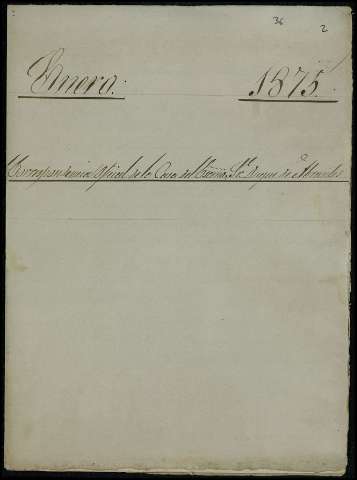 36 2
Enero. 1875.
Correspondencia Oficial de la Casa del Excmo. Sr. Duque de Abrantes